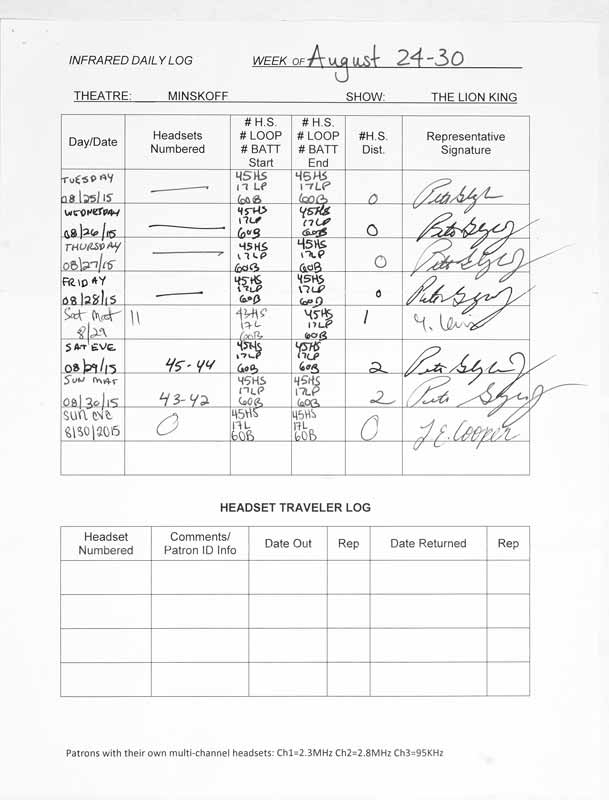 INFRARED DAILY LOG WEEK OF August 24-30
THEATRE: MINSKOFF SHOW: THE LION KING
Day/Date Headsets Numbered # H.S. # LOOP # BATT Start # H.S. # LOOP # BATT End #H.S. Dist. Representative Signature
TUESDAY 08/25/15 — 45HS 17LP 60B 45HS 17LP 60B 0
WEDNESDAY 08/26/15 — 45HS 17LP 60B 45HS 17LP 60B 0
THURSDAY 08/27/15 — 45HS 17LP 60B 45HS 17LP 60B 0
FRIDAY 08/28/15 — 45HS 17LP 60B 45HS 17LP 60B 0
Sat Mat 8/29 11 17L 60B 45HS 17LP 60B 1
SAT EVE 08/29/15 45-44 45HS 17LP 60B 45HS 17LP 60B 2
SUN MAT 08/30/15 43-42 45HS 17LP 60B 45HS 17LP 60B 2
SUN EVE 8/30/2015 0 45HS 17L 60B 45HS 17L 60B 0 J E. Cooper
HEADSET TRAVELER LOG
Headset Numbered Comments/ Patron ID Info Date Out Rep Date Returned Rep
Patrons with their own multi-channel headsets: Ch1=2.3MHz Ch2=2.8MHz Ch3=95KHz